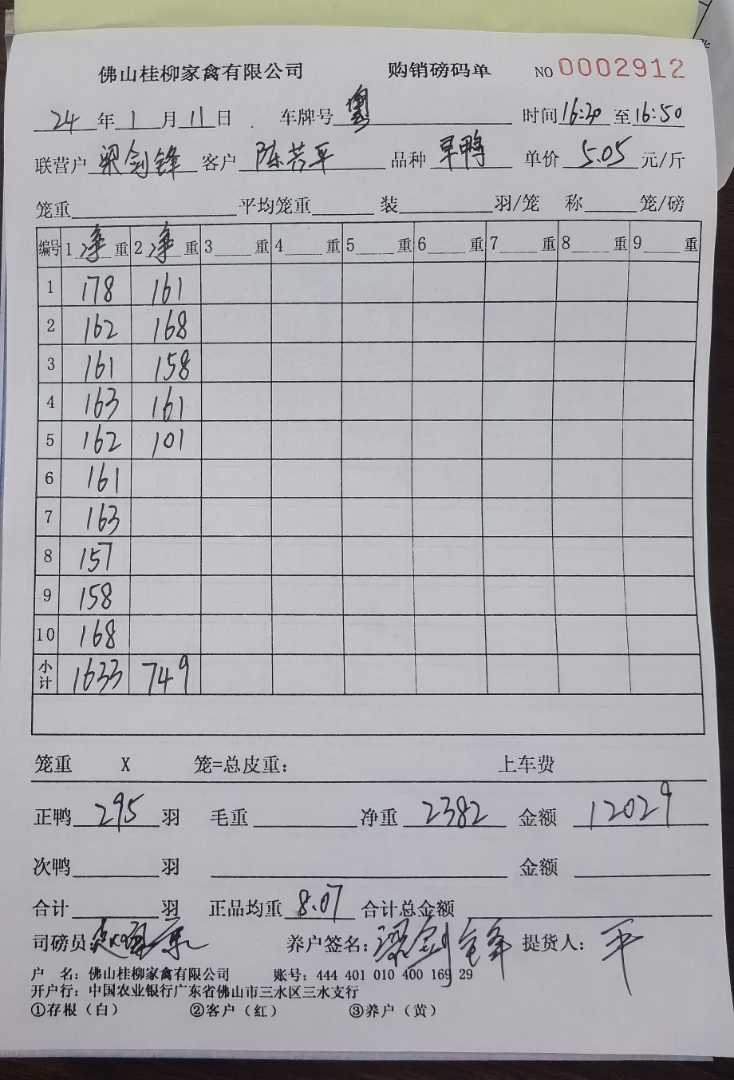 佛山桂柳家禽有限公司 购销磅码单 NO 0002912
24 年 1 月 11 日 车牌号 粤 时间 16:20 至 16:50
联营户 梁剑锋 客户 陈芸平 品种 旱鸭 单价 5.05 元/斤
笼重 平均笼重 装 羽/笼 称 笼/磅
编号 1 净 重 2 净 重 3 重 4 重 5 重 6 重 7 重 8 重 9 重
1 178 161
2 162 168
3 161 158
4 163 161
5 162 101
6 161
7 163
8 157
9 158
10 168
小计 1633 749
笼重 X 笼=总皮重: 上车费
正鸭 295 羽 毛重 净重 2382 金额 12029
次鸭 羽 金额
合计 羽 正品均重 8.07 合计总金额
司磅员 养户签名: 梁剑锋 提货人: 平
户 名: 佛山桂柳家禽有限公司 账号: 444 401 010 400 169 29
开户行: 中国农业银行广东省佛山市三水区三水支行
①存根(白) ②客户(红) ③养户(黄)